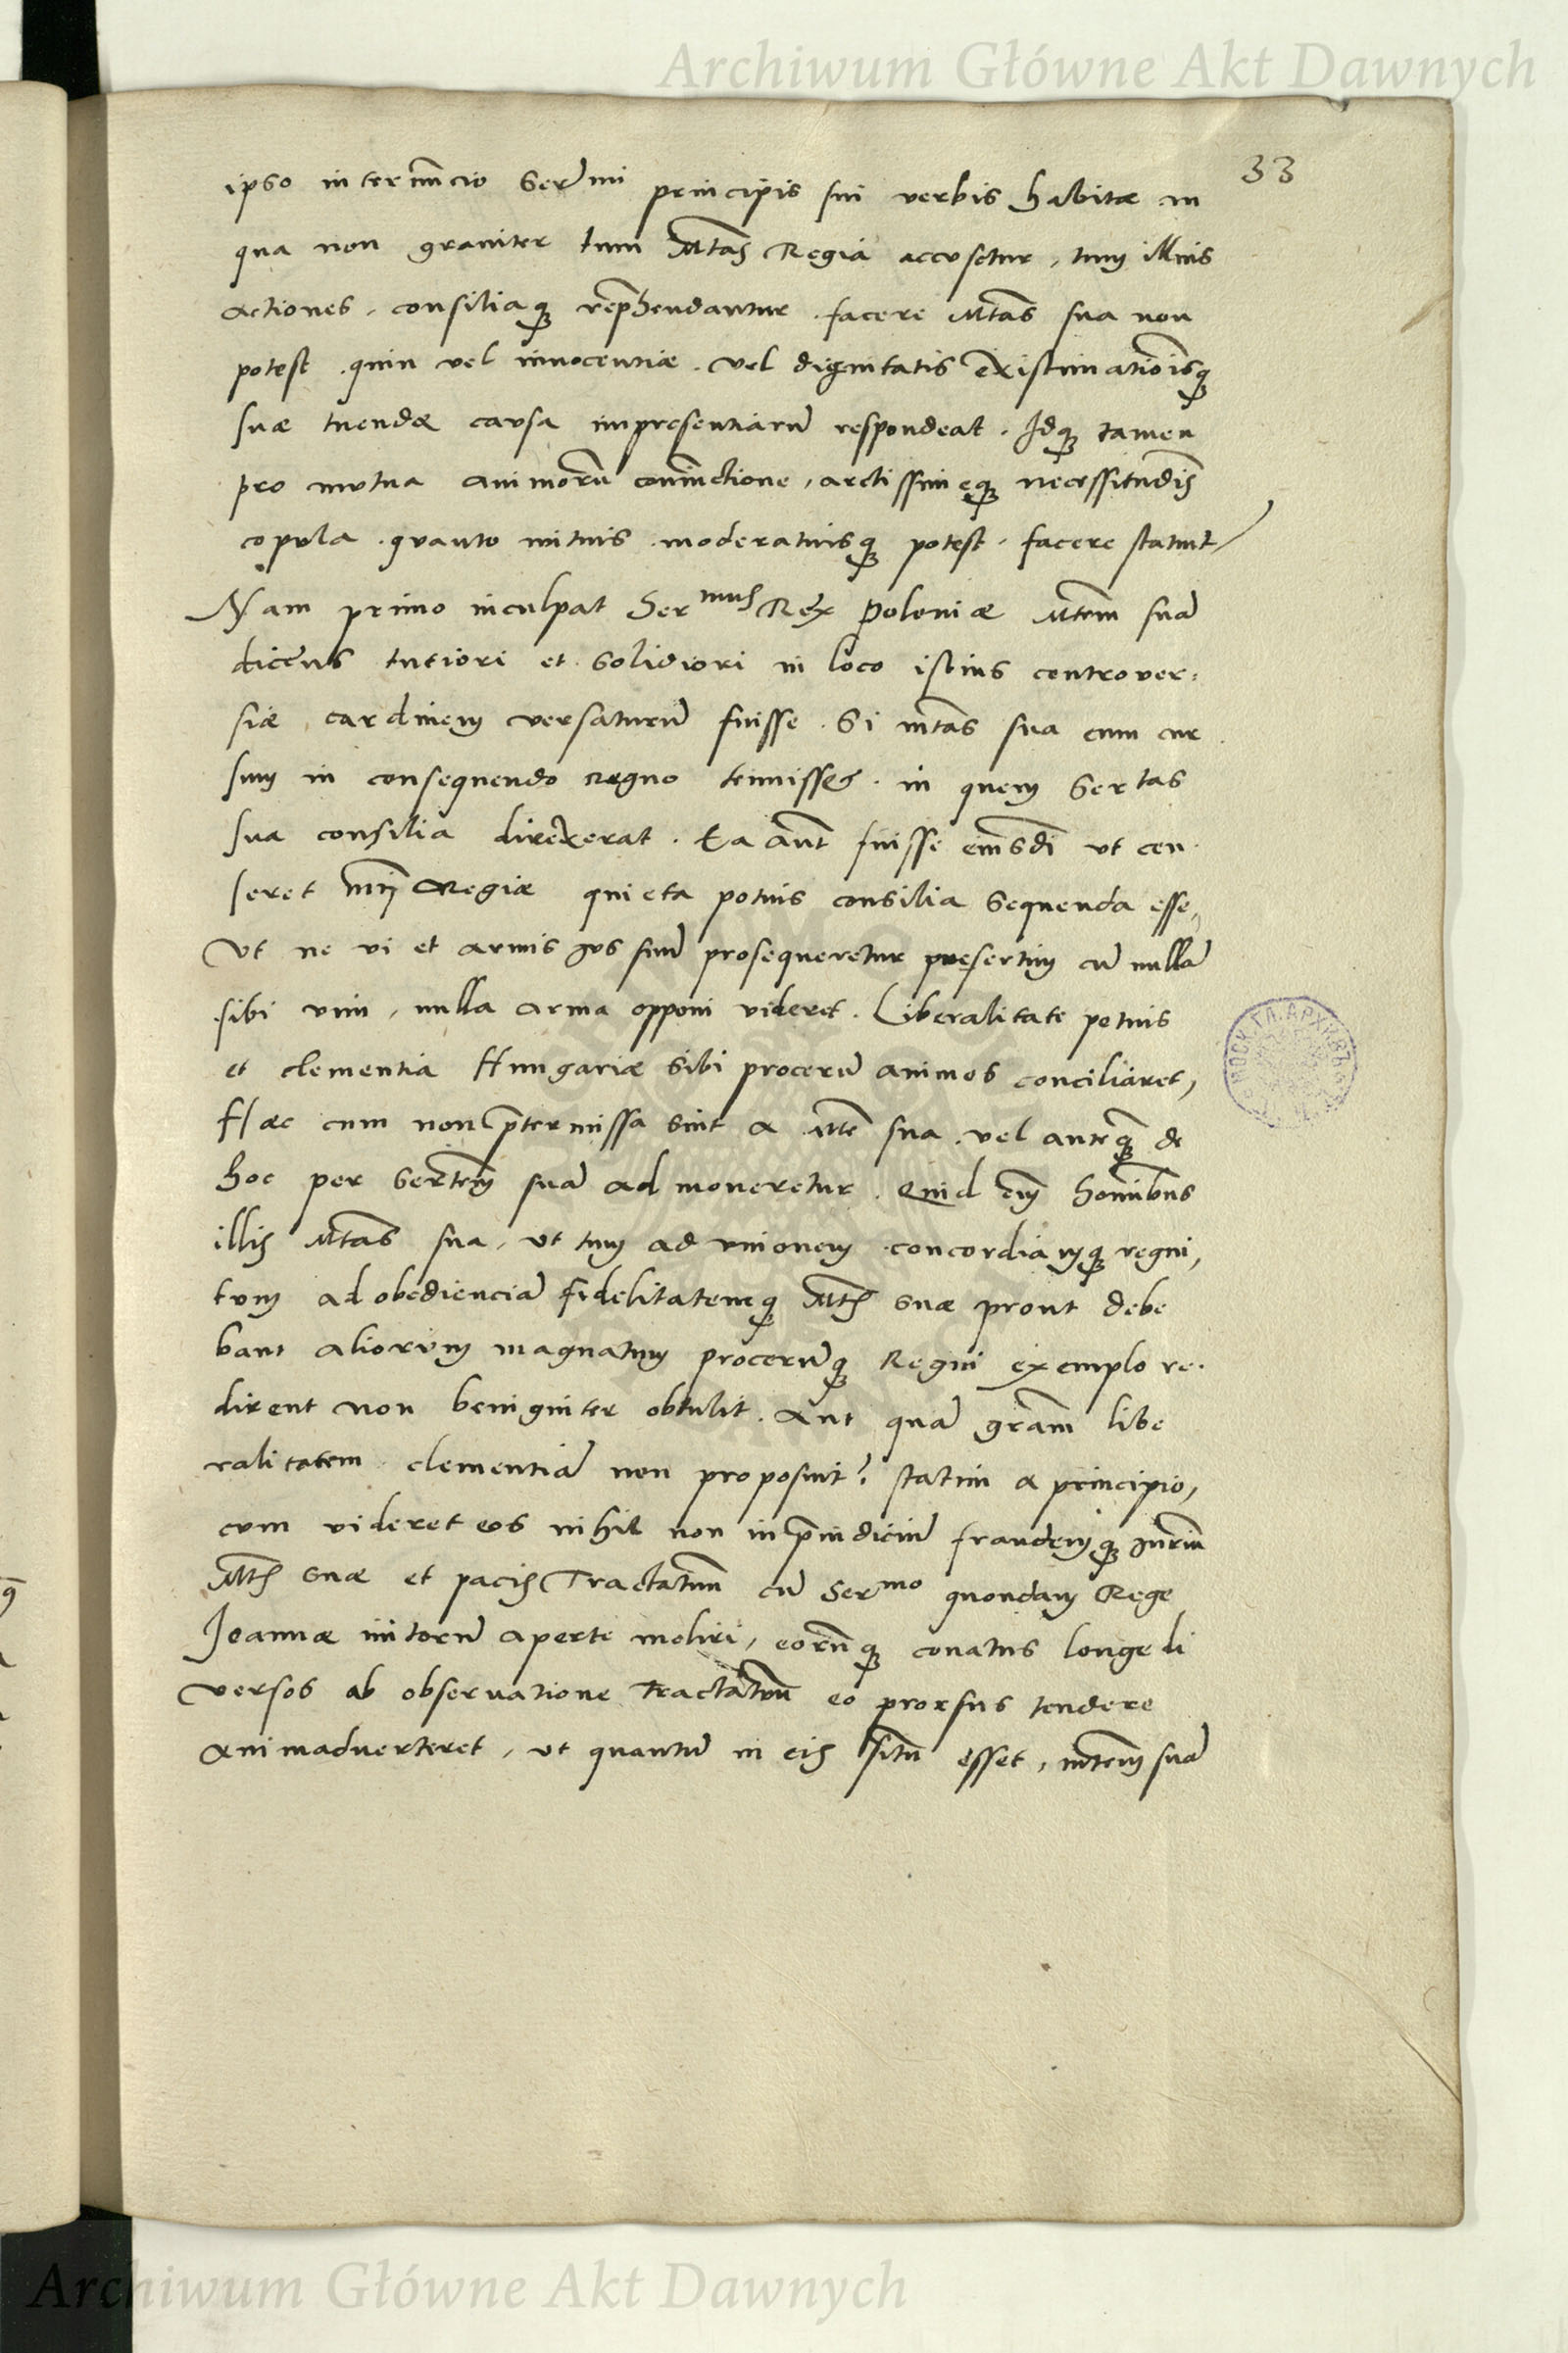 Archiwum Główne Akt Dawnych
33
ipso internuncio Sermi principis sui verbis habitæ in
qua non graviter tum Mtas Regia accusetur, tum illius
actiones, consiliaq; reprhendantur. facere Mtas sua non
potest. quin vel innocentiæ. vel dignitatis existimatiōisq;
suæ tuendæ causa impresentiarū respondeat. Idq; tamen
pro mutua animorū coniūctione, arctissimęq; necessitudīs
copula. quanto mitius moderatiusq; potest. facere statuit
Nam primo inculpat Sermus Rex Poloniæ Mtem suā
dicens tutiori et solidiori in loco istius controver=
siæ cardinem versaturū fuisse. Si mtas sua eum cur
sum in consequendo regno tenuisset. in quem Sertas
sua consilia direxerat. Ea aūt fuisse eiusdī ut cen
seret Mti Regiæ quieta potius consilia sequenda esse,
Ut ne vi et armis ius suū prosequeretur pręsertim cū nullā
sibi vim, nulla arma opponi videret. Liberalitate potius
et clementia Hungariæ sibi procerū animos conciliaret,
Hæc cum non p̄termissa sint a Mte sua. vel anteq; de
hoc per Sertem suā admoneretur. Quid em̄ homībus
illis Mtas sua, ut tum ad unionem concordiamq; regni,
tum ad obedienciā fidelitatemq; Mtis suæ prout debe
bant aliorum magnatum procerūq; Regni exemplo re.
dirent non benigniter obtulit. Aut quā gram libe
ralitatem clementiā non proposuit? statim a principio,
cum videret eos nihil non in p̄iudiciū fraudemq; Iuriū
Mtis suæ et pacis Tractatuum cū Sermo quondam Rege
Joannæ initorū aperte moliri, eorūq; conatus longe di
versos ab observatione Tractatuū eo prorsus tendere
animadverteret, ut quantū in eis situ esset, mtem suā
МОСК. ГЛ. АРХИВЪ
Archiwum Główne Akt Dawnych